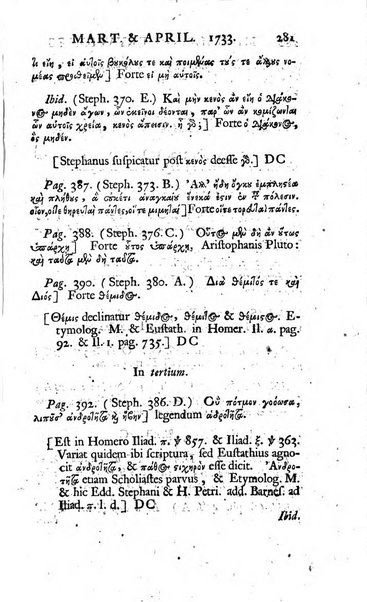 MART. & APRIL. 1733. 281
τι εἴη, εἰ αὐτοῖς βυκόλυς τε καὶ ποιμένας τύς τε ἄλλυς νο-
μέας προσθεῖμεν] Forte εἰ μὴ αὐτοῖς.
Ibid. (Steph. 370. E.) Καὶ μὴν κενὸς ἂν εἴη ὁ διάκον-
ος μηδὲν ἄγων, ὧν ἐκεῖνοι δέονται, παρ' ὧν ἂν κομίζωνται
ὧν αὐτοῖς χρεία, κενὸς ἄπεισιν. ἢ γὰρ;] Forte ὁ διάκονος,
ὃς μηδέν.
[Stephanus suspicatur post κενὸς deesse γδ] DC
Pag. 387. (Steph. 373. B.) Ἀλλ' ἤδη ὄγκυ ἐμπλησέα
καὶ πλήθυς, ἃ ἐκέτι ἀναγκαίυ ἕνεκά ἐσιν ἐν τ πόλεσιν.
οἷον, οἵτε θηρευταὶ πάντες, οἵ τε μιμηταὶ] Forte οἵτε τορευταὶ πάντες.
Pag. 388. (Steph. 376. C.) Οὗτος μὲν δὴ ἂν ὕτως
ὑπάρχη] Forte ὑπάρχῃ, Aristophanis Pluto:
καὶ ταῦτα μὲν δὴ ταῦτα.
Pag. 390. (Steph. 380. A.) Διὰ θέμιτός τε καὶ
Διός] Forte θέμιδος.
[Θέμις declinatur θέμιδος, θέμιτος & θέμιστος. E-
tymolog. M. & Eustath. in Homer. Il. α. pag.
92. & Il. ι. pag. 735.] DC
In tertium.
Pag. 392. (Steph. 386. D.) Ὃν πότμον γοόωσα,
λιπῦσ' ἀνδροῆτα & ἥβην] legendum ἁδροῆτα.
[Est in Homero Iliad. π. ψ 857. & Iliad. ξ. ψ 363.
Variat quidem ibi scriptura, sed Eustathius agno-
cit ἀνδροῆτα, & πάθος σιχηρὸν esse dicit. Ἀνδρο-
τῆτα etiam Scholiastes parvus, & Etymolog. M.
& hic Edd. Stephani & H. Petri. add. Barnes. ad
Iliad. π. l. d.] DC
Ibid.